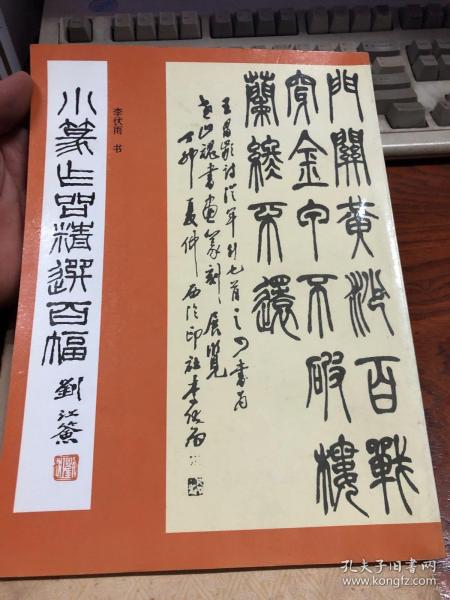 小篆作品精選百幅
劉江簽
李伏雨 书
門關黃沙百戰
穿金甲不破樓
蘭終不還
王昌齡詩從軍行七首之四書為
老山魂書畫篆刻展覽
丁卯夏仲西泠印社李伏雨
孔夫子旧书网
www.kongfz.com